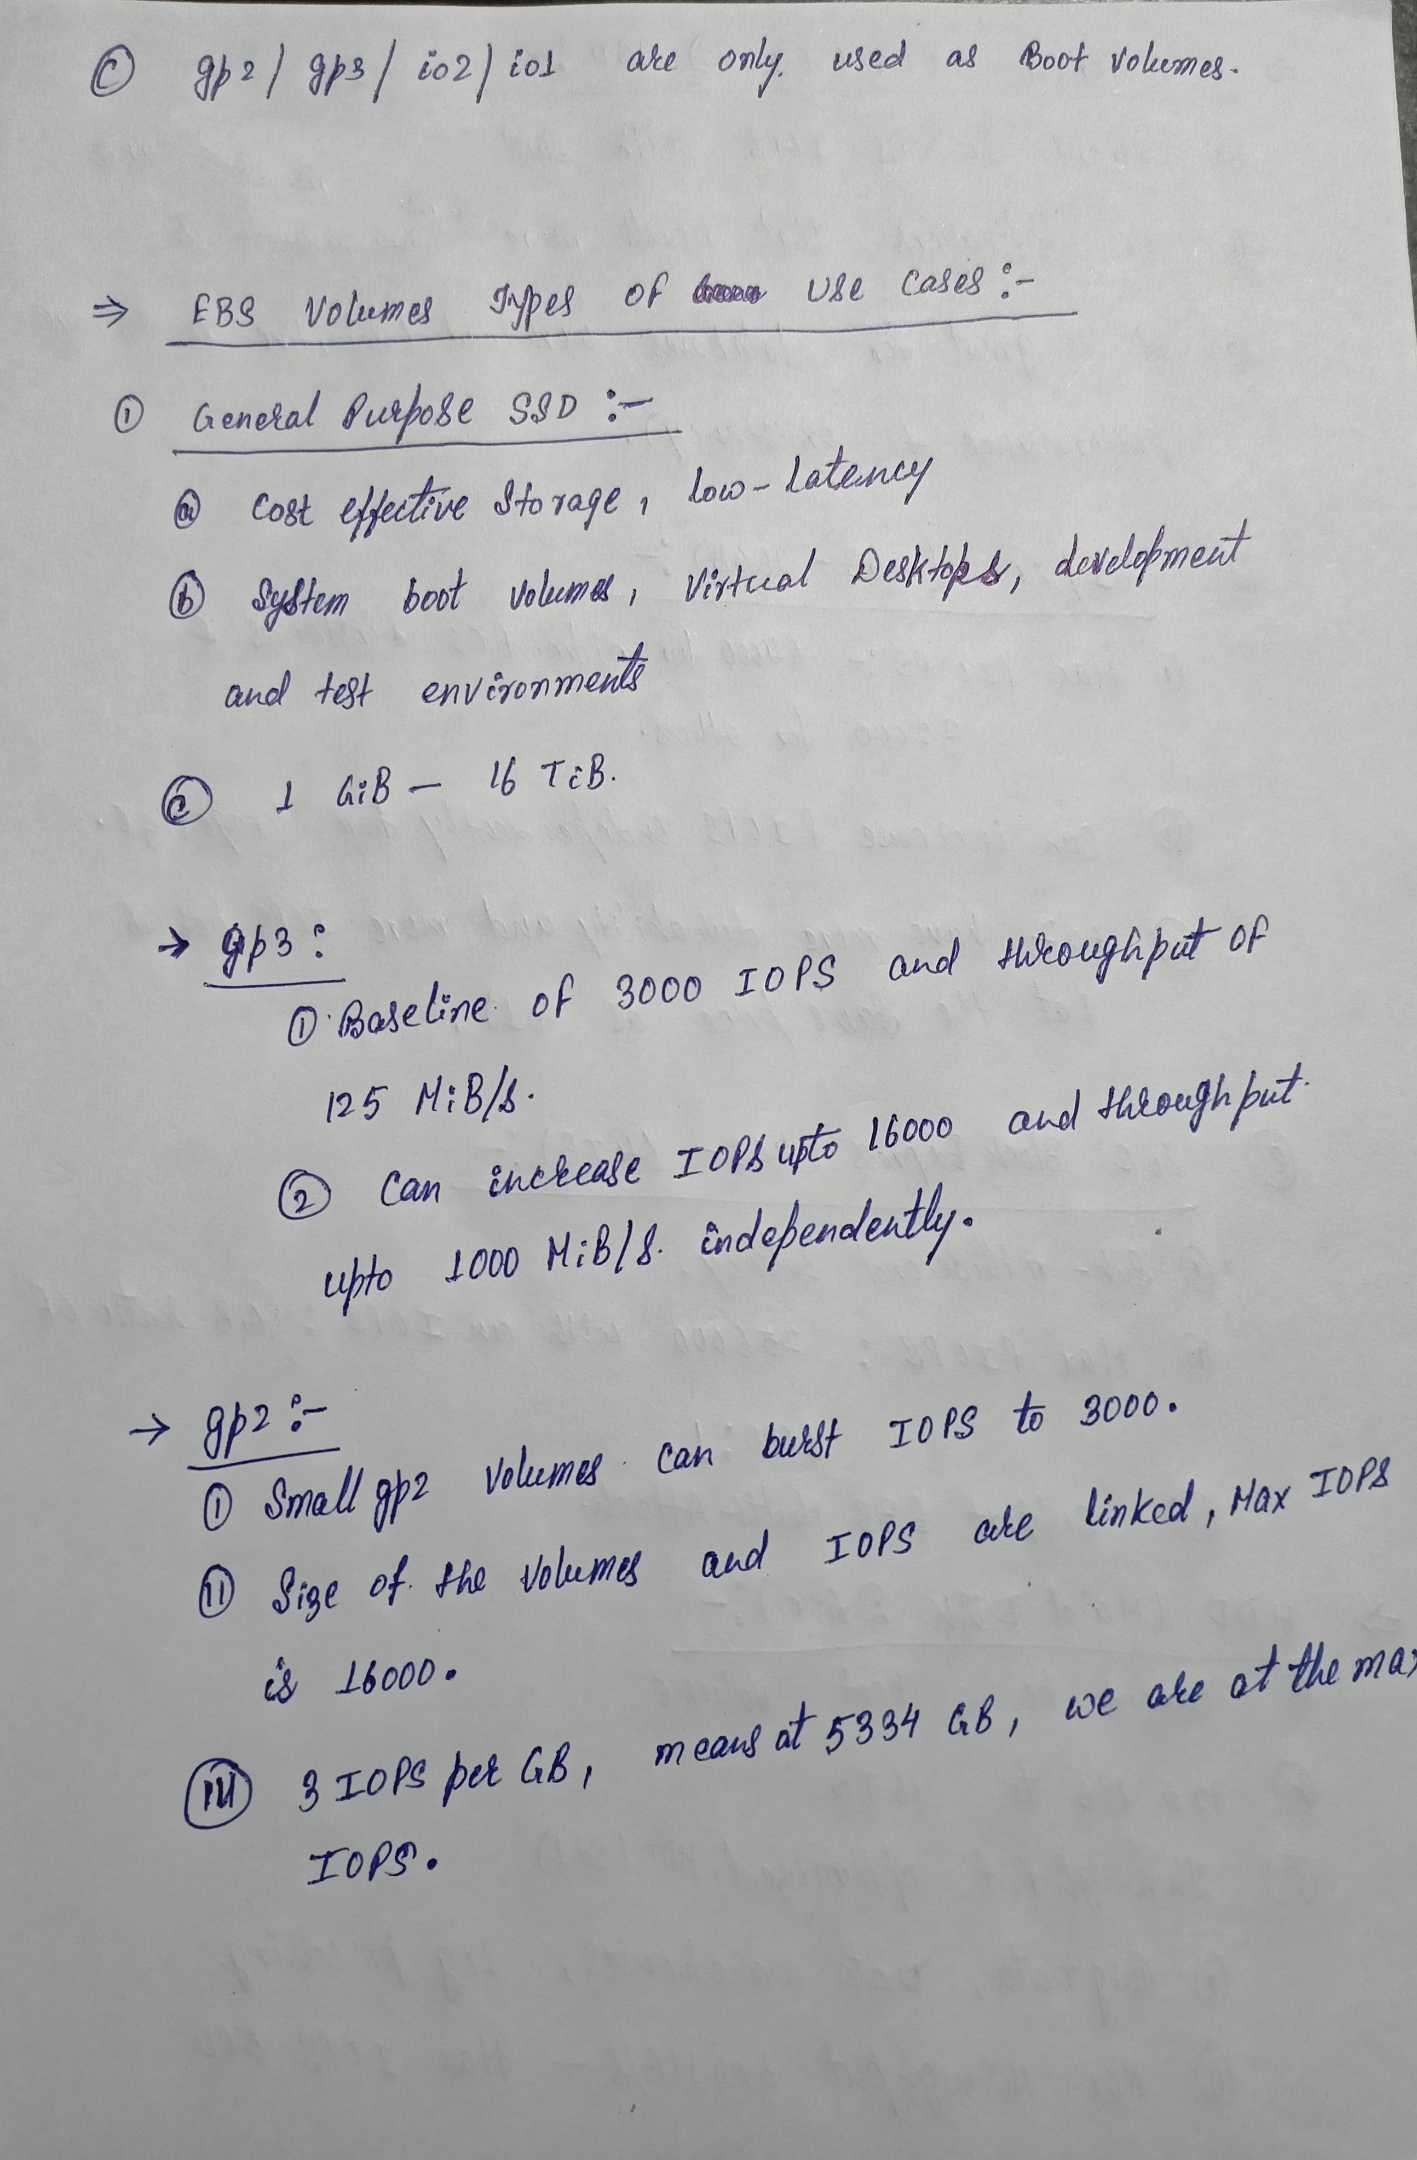 Ⓒ gp2/ gp3/ io2/ io1 are only used as Boot Volumes.
⇒ EBS Volumes Types of Use Cases :-
① General Purpose SSD :-
ⓐ Cost effective Storage, low-latency
ⓑ System boot volumes, Virtual Desktops, development
and test environments
ⓒ 1 GiB - 16 TiB.
→ gp3 :
① Baseline of 3000 IOPS and throughput of
125 MiB/s.
② Can increase IOPS upto 16000 and throughput
upto 1000 MiB/s. independently.
→ gp2 :-
Ⓘ Small gp2 volumes can burst IOPS to 3000.
ⓘⓘ Size of the volumes and IOPS are linked, Max IOPS
is 16000.
ⓘⓘⓘ 3 IOPS per GB, means at 5334 GB, we are at the max
IOPS.